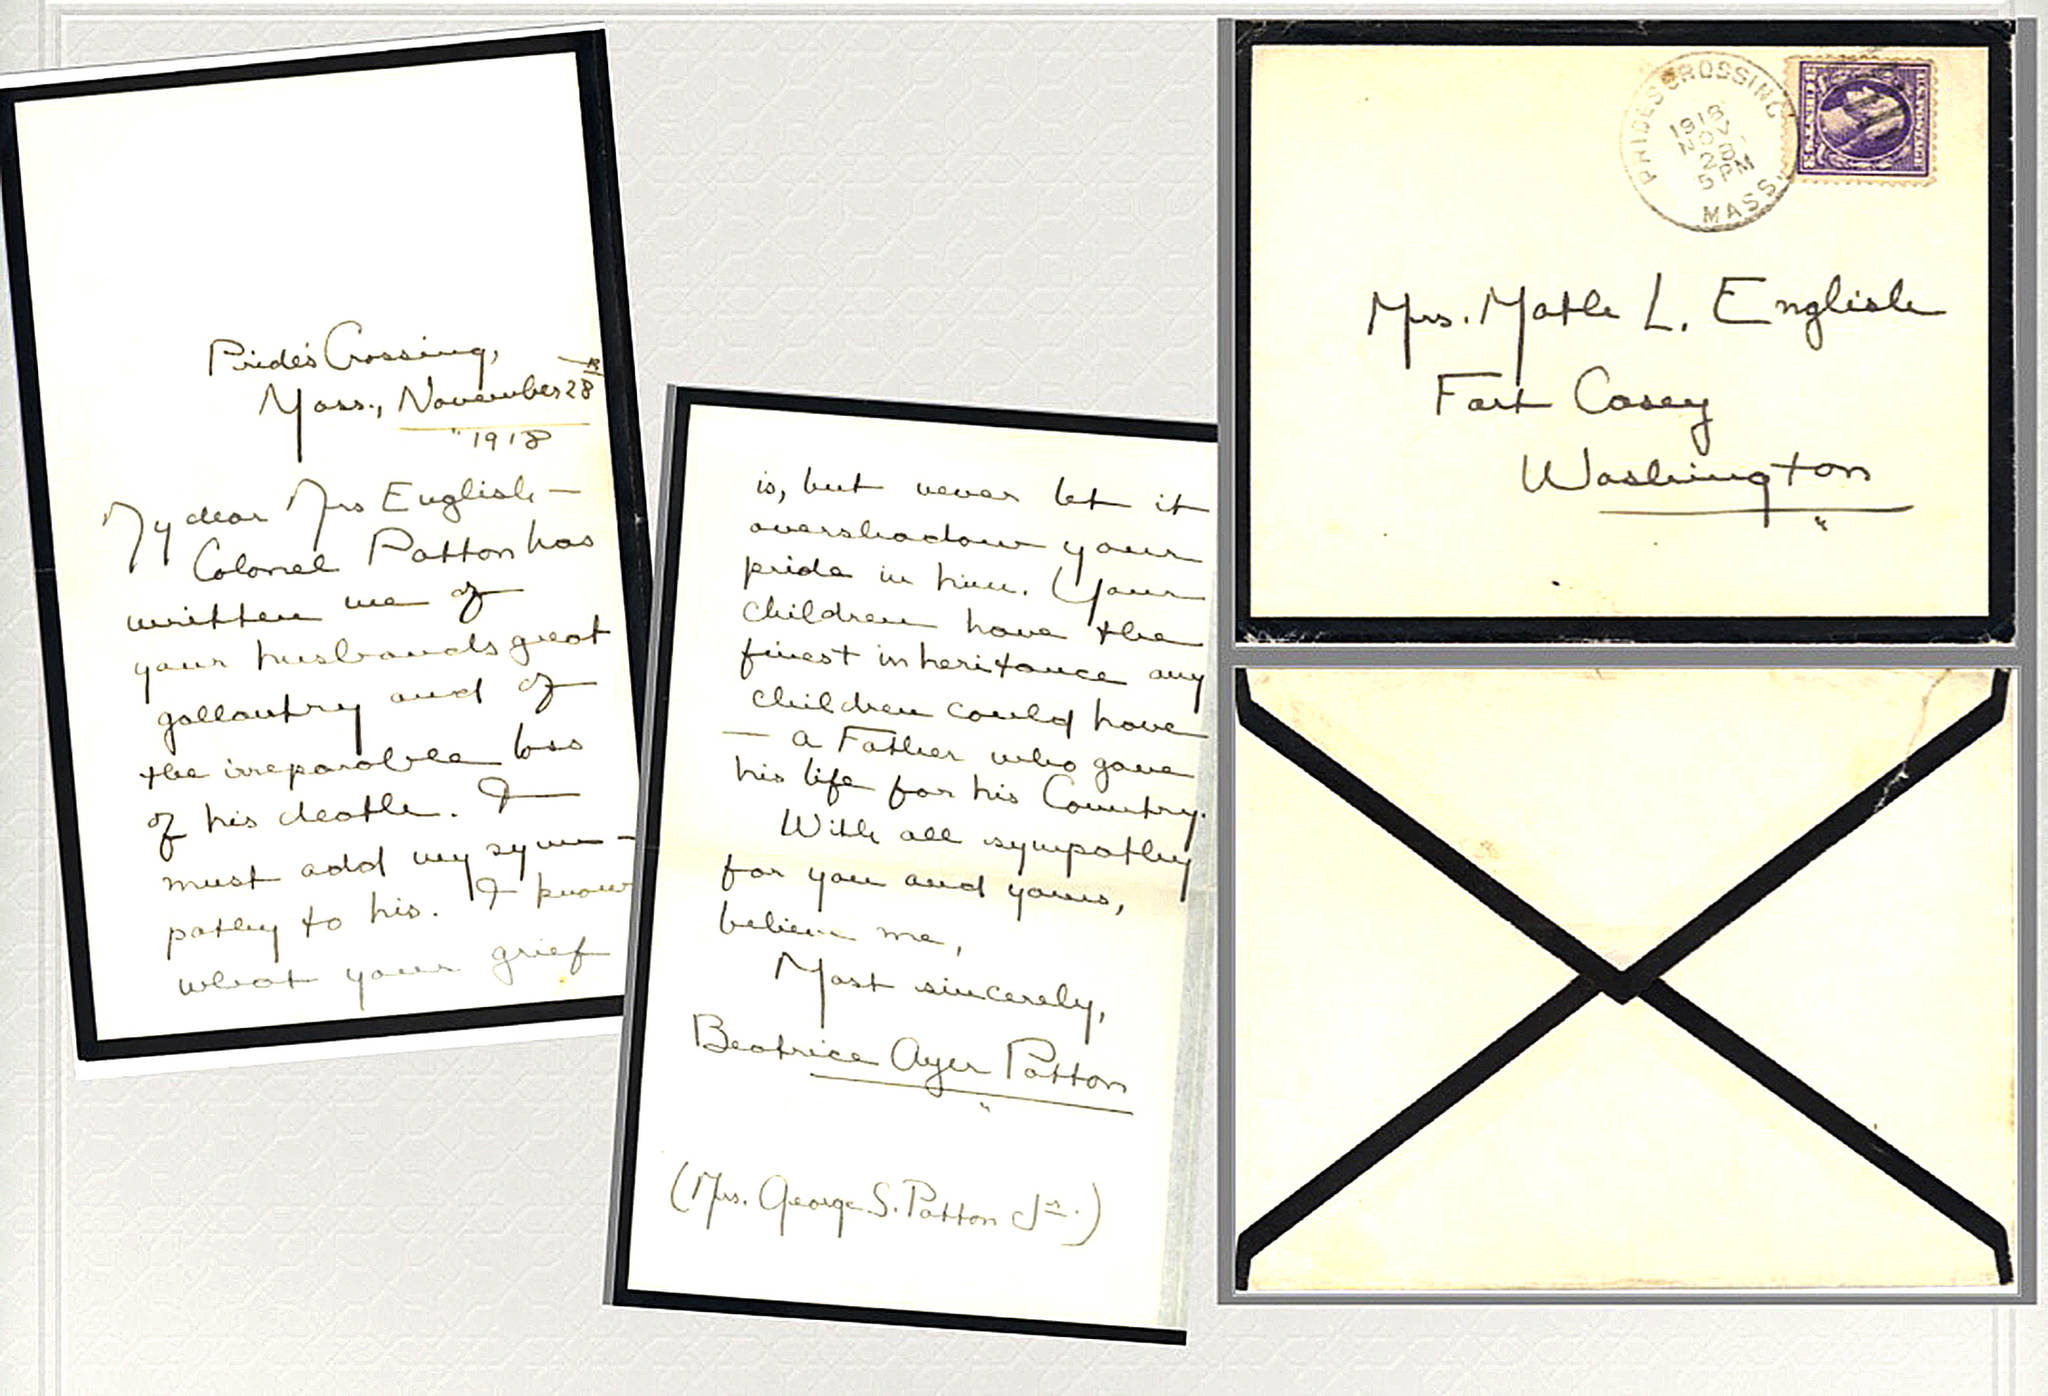 Pride's Crossing,
Mass., November 28th
1918
My dear Mrs English —
Colonel Patton has
written me of
your husbands great
gallantry and of
the irreparable loss
of his death. I
must add my sym-
pathy to his. I know
what your grief
is, but never let it
overshadow your
pride in him. Your
children have the
finest inheritance any
children could have
— a Father who gave
his life for his Country.
With all sympathy
for you and yours,
believe me,
Most sincerely,
Beatrice Ayer Patton
(Mrs. George S. Patton Jr.)
PRIDES CROSSING
1918
NOV
28
5 PM
MASS.
Mrs. Matle L. English
Fort Casey
Washington